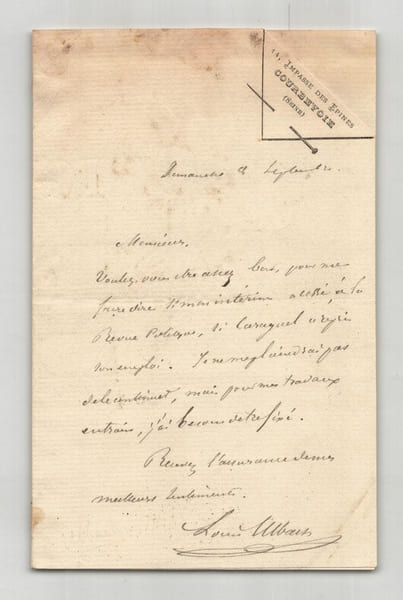 14, IMPASSE DES EPINES
COURBEVOIE
(Seine)
Dimanche 8 Septembre.
Monsieur,
Voulez-vous être assez bon, pour me
faire dire si mon intérim a cessé, à la
Revue Politique, si Caraguel a repris
son emploi. Je ne me plaindrai pas
de le continuer, mais pour mes travaux
en train, j'ai besoin d'être fixé.
Recevez l'assurance de mes
meilleurs sentiments.
Louis Ulbach